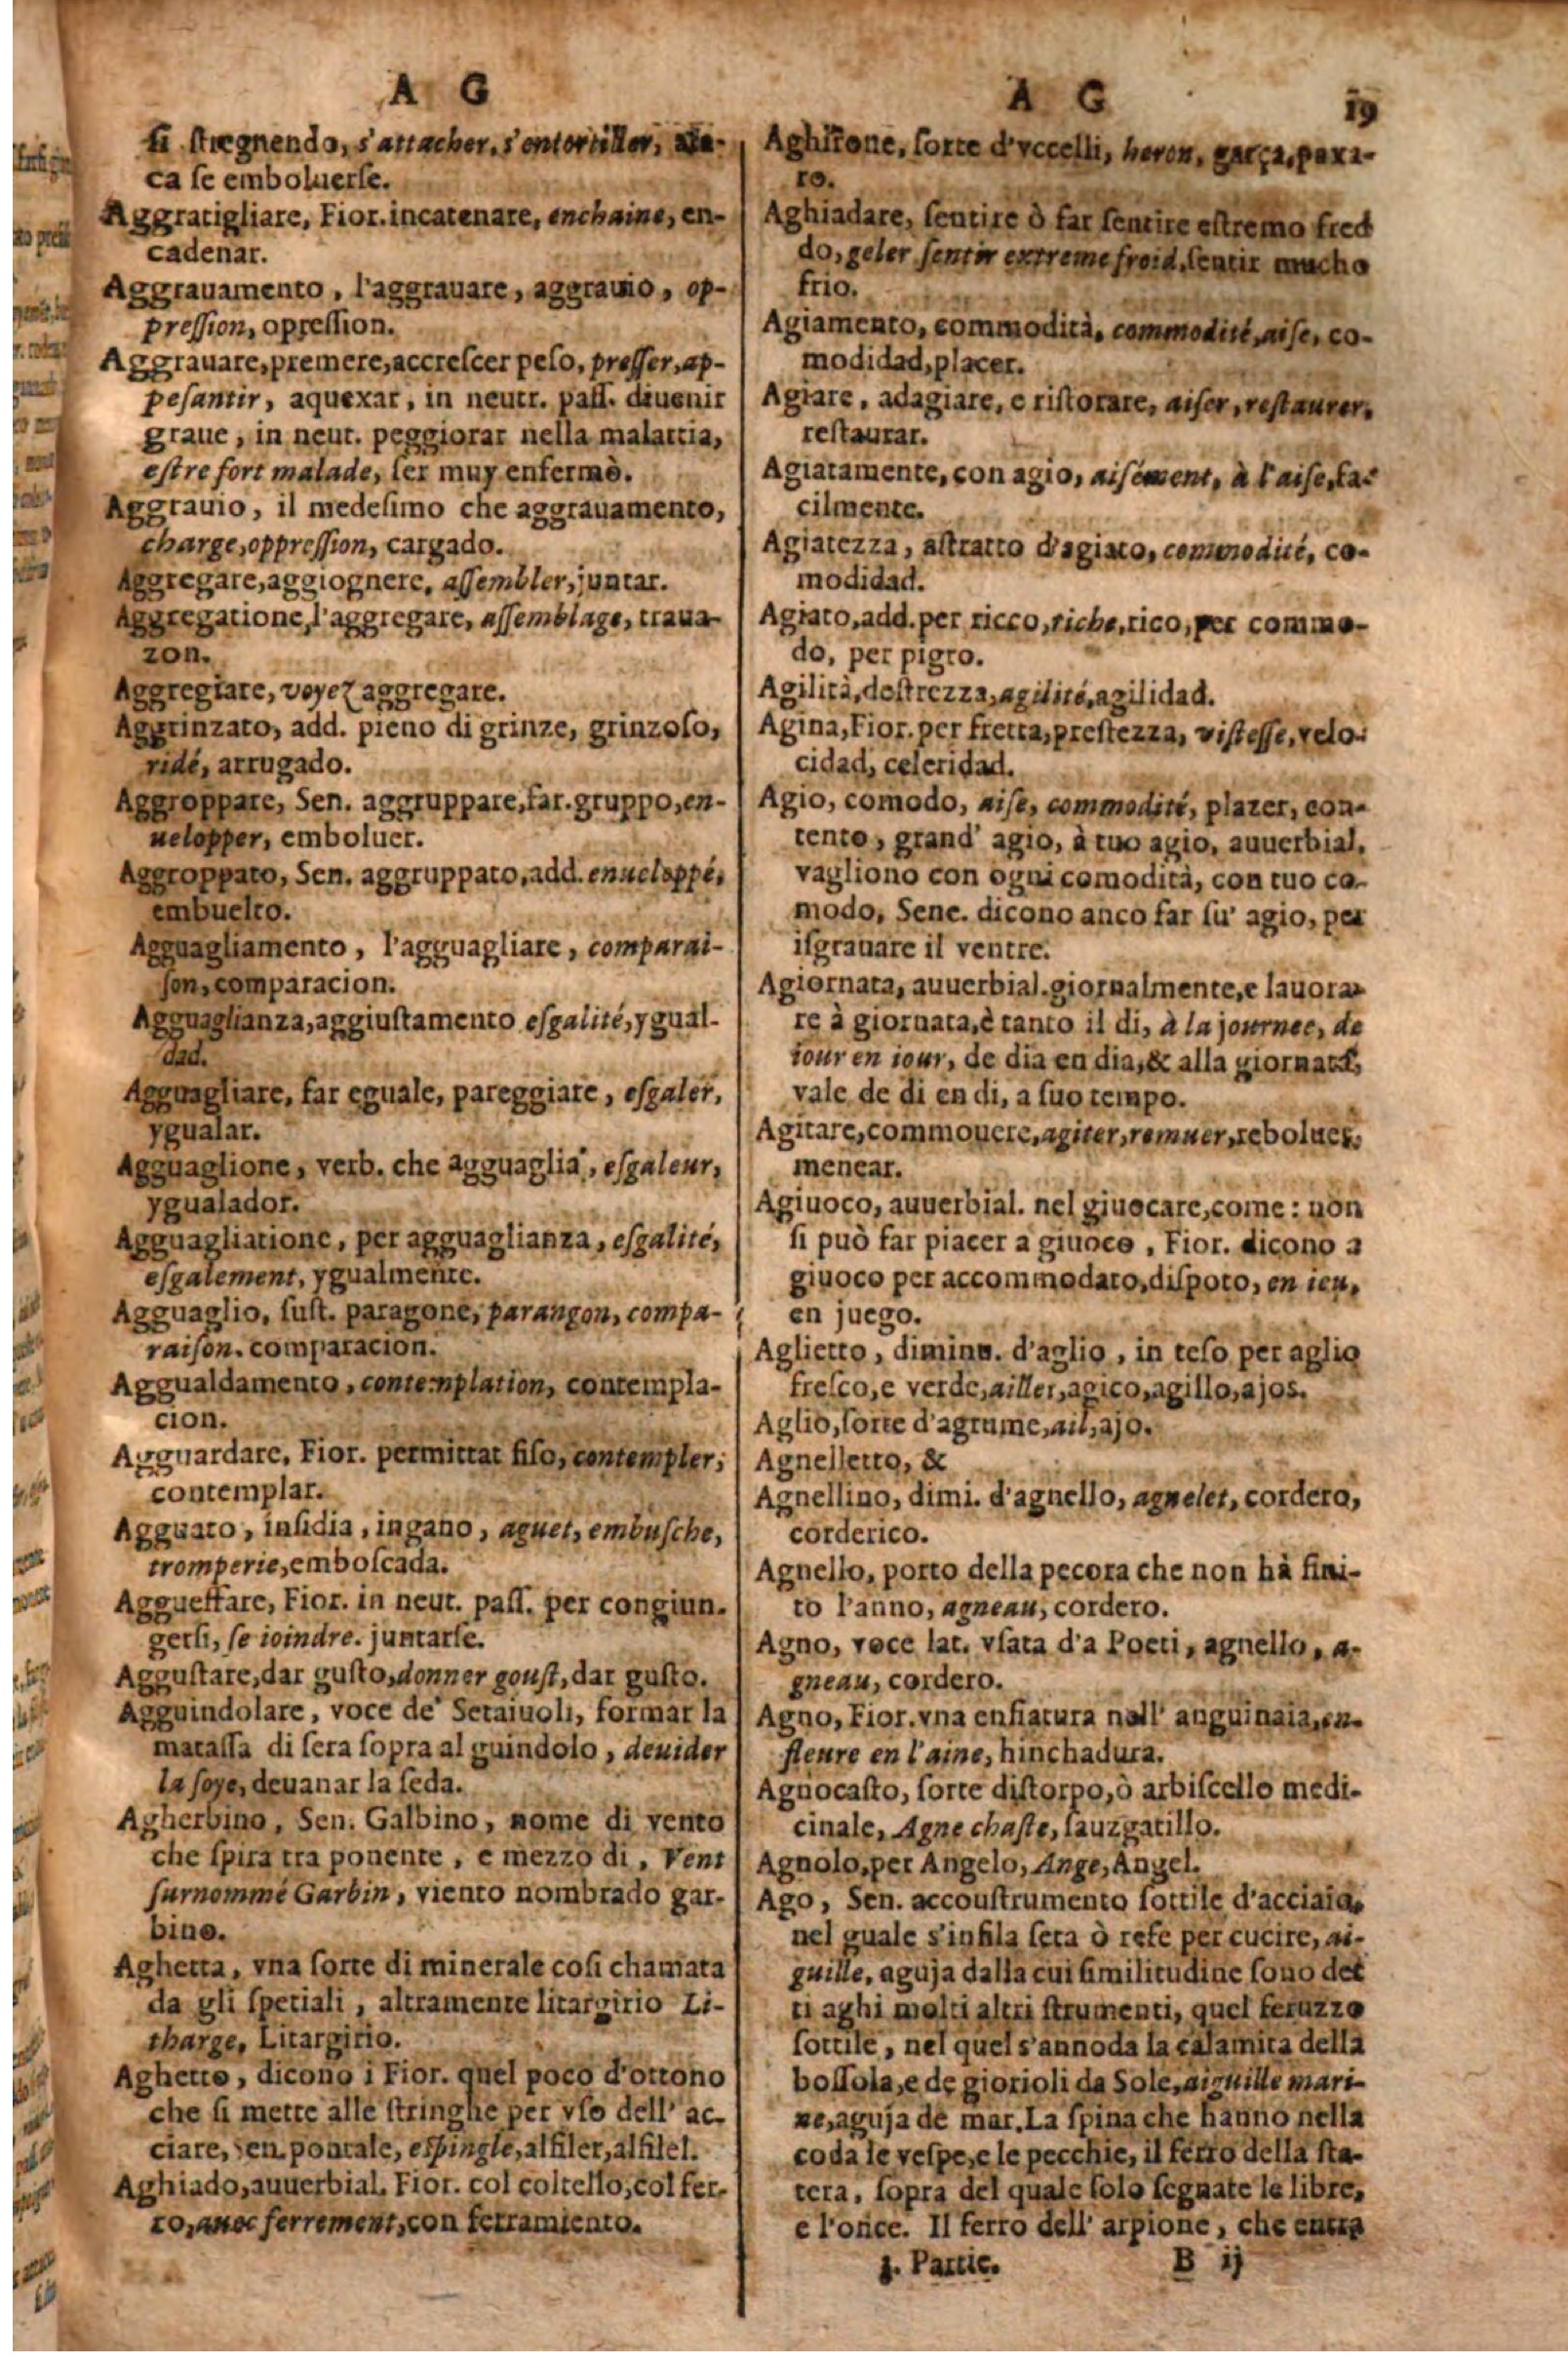 A G
ſi ſtregnendo, s'attacher, s'entortiller, ata-
ca ſe emboluerſe.
Aggratigliare, Fior. incatenare, enchaine, en-
cadenar.
Aggrauamento, l'aggrauare, aggrauio, op-
preſſion, opreſſion.
Aggrauare, premere, accreſcer peſo, preſſer, ap-
peſantir, aquexar, in neutr. paſſ. diuenir
graue, in neut. peggiorar nella malattia,
eſtre fort malade, ſer muy enfermè.
Aggrauio, il medeſimo che aggrauamento,
charge, oppreſſion, cargado.
Aggregare, aggiognere, aſſembler, juntar.
Aggregatione, l'aggregare, aſſemblage, traua-
zon.
Aggregiare, voyez aggregare.
Aggrinzato, add. pieno di grinze, grinzoſo,
ridé, arrugado.
Aggroppare, Sen. aggruppare, far. gruppo, en-
uelopper, emboluer.
Aggroppato, Sen. aggruppato, add. enueloppé,
embuelto.
Agguagliamento, l'agguagliare, comparai-
ſon, comparacion.
Agguaglianza, aggiuſtamento eſgalité, ygual-
dad.
Agguagliare, far eguale, pareggiare, eſgaler,
ygualar.
Agguaglione, verb. che agguaglia, eſgaleur,
ygualador.
Agguagliatione, per agguaglianza, eſgalité,
eſgalement, ygualmente.
Agguaglio, ſuſt. paragone, parangon, compa-
raiſon. comparacion.
Aggualdamento, contemplation, contempla-
cion.
Agguardare, Fior. permittat fiſo, contempler,
contemplar.
Agguato, inſidia, ingano, aguet, embuſche,
tromperie, emboſcada.
Aggueffare, Fior. in neut. paſſ. per congiun.
gerſi, ſe ioindre. juntarſe.
Agguſtare, dar guſto, donner gouſt, dar guſto.
Agguindolare, voce de' Setaiuoli, formar la
mataſſa di ſera ſopra al guindolo, deuider
la ſoye, deuanar la ſeda.
Agherbino, Sen. Galbino, nome di vento
che ſpira tra ponente, e mezzo di, Vent
ſurnommé Garbin, viento nombrado gar-
bino.
Aghetta, vna ſorte di minerale coſi chamata
da gli ſpetiali, altramente litargirio Li-
tharge, Litargirio.
Aghetto, dicono i Fior. quel poco d'ottono
che ſi mette alle ſtringhe per vſo dell' ac-
ciare, ſen pontale, eſpingle, alfiler, alfilel.
Aghiado, auuerbial. Fior. col coltello, col fer-
ro, auec ferrement, con ferramiento.
A G 19
Aghirone, ſorte d'vccelli, heron, garça, paxa-
ro.
Aghiadare, ſentire ò far ſentire eſtremo fred
do, geler ſentir extreme froid, ſentir mucho
frio.
Agiamento, commodità, commodité, aiſe, co-
modidad, placer.
Agiare, adagiare, e riſtorare, aiſer, reſtaurer,
reſtaurar.
Agiatamente, con agio, aiſément, à l'aiſe, fa-
cilmente.
Agiatezza, aſtratto d'agiato, commodité, co-
modidad.
Agiato, add. per ricco, riche, rico, per commo-
do, per pigro.
Agilità, deſtrezza, agilité, agilidad.
Agina, Fior. per fretta, preſtezza, viſteſſe, velo-
cidad, celeridad.
Agio, comodo, aiſe, commodité, plazer, con-
tento, grand' agio, à tuo agio, auuerbial.
vagliono con ogni comodità, con tuo co-
modo, Sene. dicono anco far ſu' agio, per
iſgrauare il ventre.
Agiornata, auuerbial. giornalmente, e lauora-
re à giornata, è tanto il di, à la journee, de
iour en iour, de dia en dia, & alla giornata,
vale de di en di, a ſuo tempo.
Agitare, commouere, agiter, remuer, reboluer,
menear.
Agiuoco, auuerbial. nel giuocare, come: non
ſi può far piacer a giuoco, Fior. dicono a
giuoco per accommodato, diſpoto, en ieu,
en juego.
Aglietto, diminu. d'aglio, in teſo per aglio
freſco, e verde, ailler, agico, agillo, ajos.
Aglio, ſorte d'agrume, ail, ajo.
Agnelletto, &
Agnellino, dimi. d'agnello, agnelet, cordero,
corderico.
Agnello, porto della pecora che non hà fini-
to l'anno, agneau, cordero.
Agno, voce lat. vſata d'a Poeti, agnello, a-
gneau, cordero.
Agno, Fior. vna enfiatura nall' anguinaia, en-
fleure en l'aine, hinchadura.
Agnocaſto, ſorte diſtorpo, ò arbiſcello medi-
cinale, Agne chaſte, ſauzgatillo.
Agnolo, per Angelo, Ange, Angel.
Ago, Sen. accouſtrumento ſottile d'acciaio,
nel guale s'infila ſeta ò refe per cucire, ai-
guille, aguja dalla cui ſimilitudine ſono det
ti aghi molti altri ſtrumenti, quel feruzzo
ſottile, nel quel s'annoda la calamita della
boſſola, e de giorioli da Sole, aiguille mari-
ne, aguja de mar. La ſpina che hanno nella
coda le veſpe, e le pecchie, il ferro della ſta-
tera, ſopra del quale ſolo ſegnate le libre,
e l'once. Il ferro dell' arpione, che entra
j. Partie. B ij